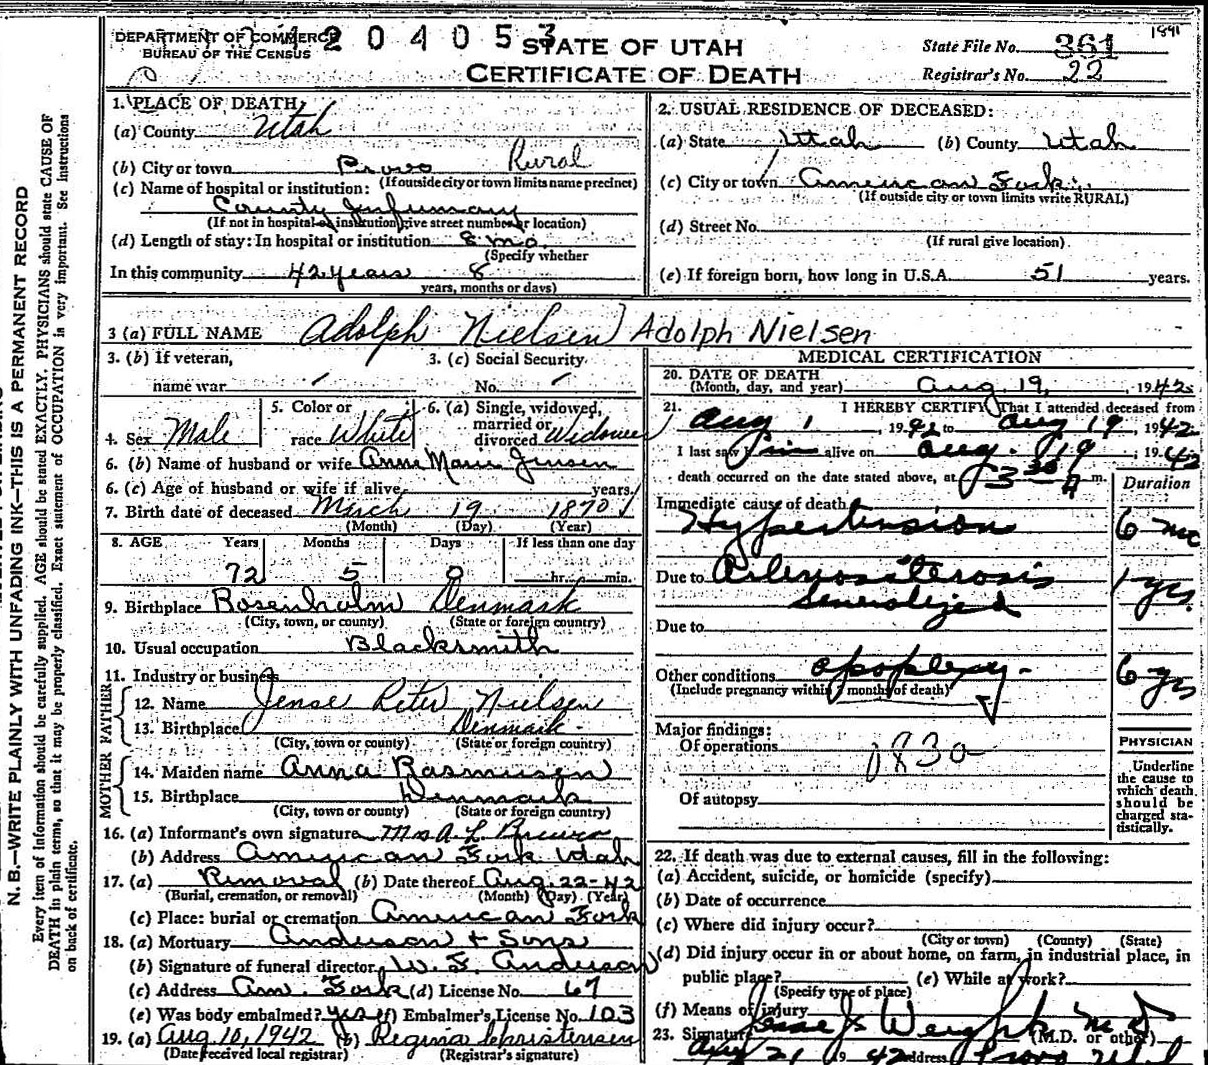 DEPARTMENT OF COMMERCE
BUREAU OF THE CENSUS
4204053
STATE OF UTAH
CERTIFICATE OF DEATH
State File No. 361
1891
Registrar's No. 22
N. B.—WRITE PLAINLY WITH UNFADING INK—THIS IS A PERMANENT RECORD
Every item of information should be carefully supplied. AGE should be stated EXACTLY. PHYSICIANS should state CAUSE OF
DEATH in plain terms, so that it may be properly classified. Exact statement of OCCUPATION is very important. See Instructions
on back of certificate.
1. PLACE OF DEATH
(a) County Utah
(b) City or town Provo Rural
(If outside city or town limits name precinct)
(c) Name of hospital or institution:
County Infirmary
(If not in hospital or institution give street number or location)
(d) Length of stay: In hospital or institution 8 mo.
(Specify whether
In this community 42 years 8
years, months or days)
2. USUAL RESIDENCE OF DECEASED:
(a) State Utah (b) County Utah
(c) City or town American Fork
(If outside city or town limits write RURAL)
(d) Street No.
(If rural give location)
(e) If foreign born, how long in U.S.A. 51 years.
3 (a) FULL NAME Adolph Nielsen) Adolph Nielsen
3. (b) If veteran,
name war
3. (c) Social Security
No.
4. Sex Male
5. Color or
race White
6. (a) Single, widowed,
married or
divorced Widower
6. (b) Name of husband or wife Anne Marie Jensen
6. (c) Age of husband or wife if alive years
7. Birth date of deceased March 19 1870
(Month) (Day) (Year)
8. AGE Years Months Days If less than one day
72 5 0 hr. min.
9. Birthplace Rosenholm Denmark
(City, town, or county) (State or foreign country)
10. Usual occupation Blacksmith
11. Industry or business
FATHER
12. Name Jense Peter Nielsen
13. Birthplace Denmark
(City, town or county) (State or foreign country)
MOTHER
14. Maiden name Anna Rasmusen
15. Birthplace Denmark
(City, town or county) (State or foreign country)
16. (a) Informant's own signature Mrs A. L.
(b) Address American Fork Utah
17. (a) Removal (b) Date thereof Aug. 22-42
(Burial, cremation, or removal) (Month) (Day) (Year)
(c) Place: burial or cremation American Fork
18. (a) Mortuary Anderson + Sons
(b) Signature of funeral director W. F. Anderson
(c) Address Am. Fork (d) License No. 67
(e) Was body embalmed? yes (f) Embalmer's License No. 103
19. (a) Aug 10, 1942 (b) Regina Christensen
(Date received local registrar) (Registrar's signature)
MEDICAL CERTIFICATION
20. DATE OF DEATH
(Month, day, and year) Aug. 19, 1942
21. I HEREBY CERTIFY, That I attended deceased from
Aug 1, 1942 to Aug 19, 1942
I last saw him alive on Aug. 19, 1942
death occurred on the date stated above, at 3 30 A m.
Duration
Immediate cause of death
Hypertension 6 mo
Due to Arteriosclerosis 1 yrs.
Generalized
Due to
Other conditions apoplexy 6 yrs
(Include pregnancy within 3 months of death)
Major findings:
Of operations
830
Of autopsy
PHYSICIAN
Underline
the cause to
which death
should be
charged sta-
tistically.
22. If death was due to external causes, fill in the following:
(a) Accident, suicide, or homicide (specify)
(b) Date of occurrence
(c) Where did injury occur?
(City or town) (County) (State)
(d) Did injury occur in or about home, on farm, in industrial place, in
public place? (e) While at work?
(Specify type of place)
(f) Means of injury
23. Signature Jesse J. Weight M D
(M.D. or other)
Aug 21 1942 Address Provo Utah